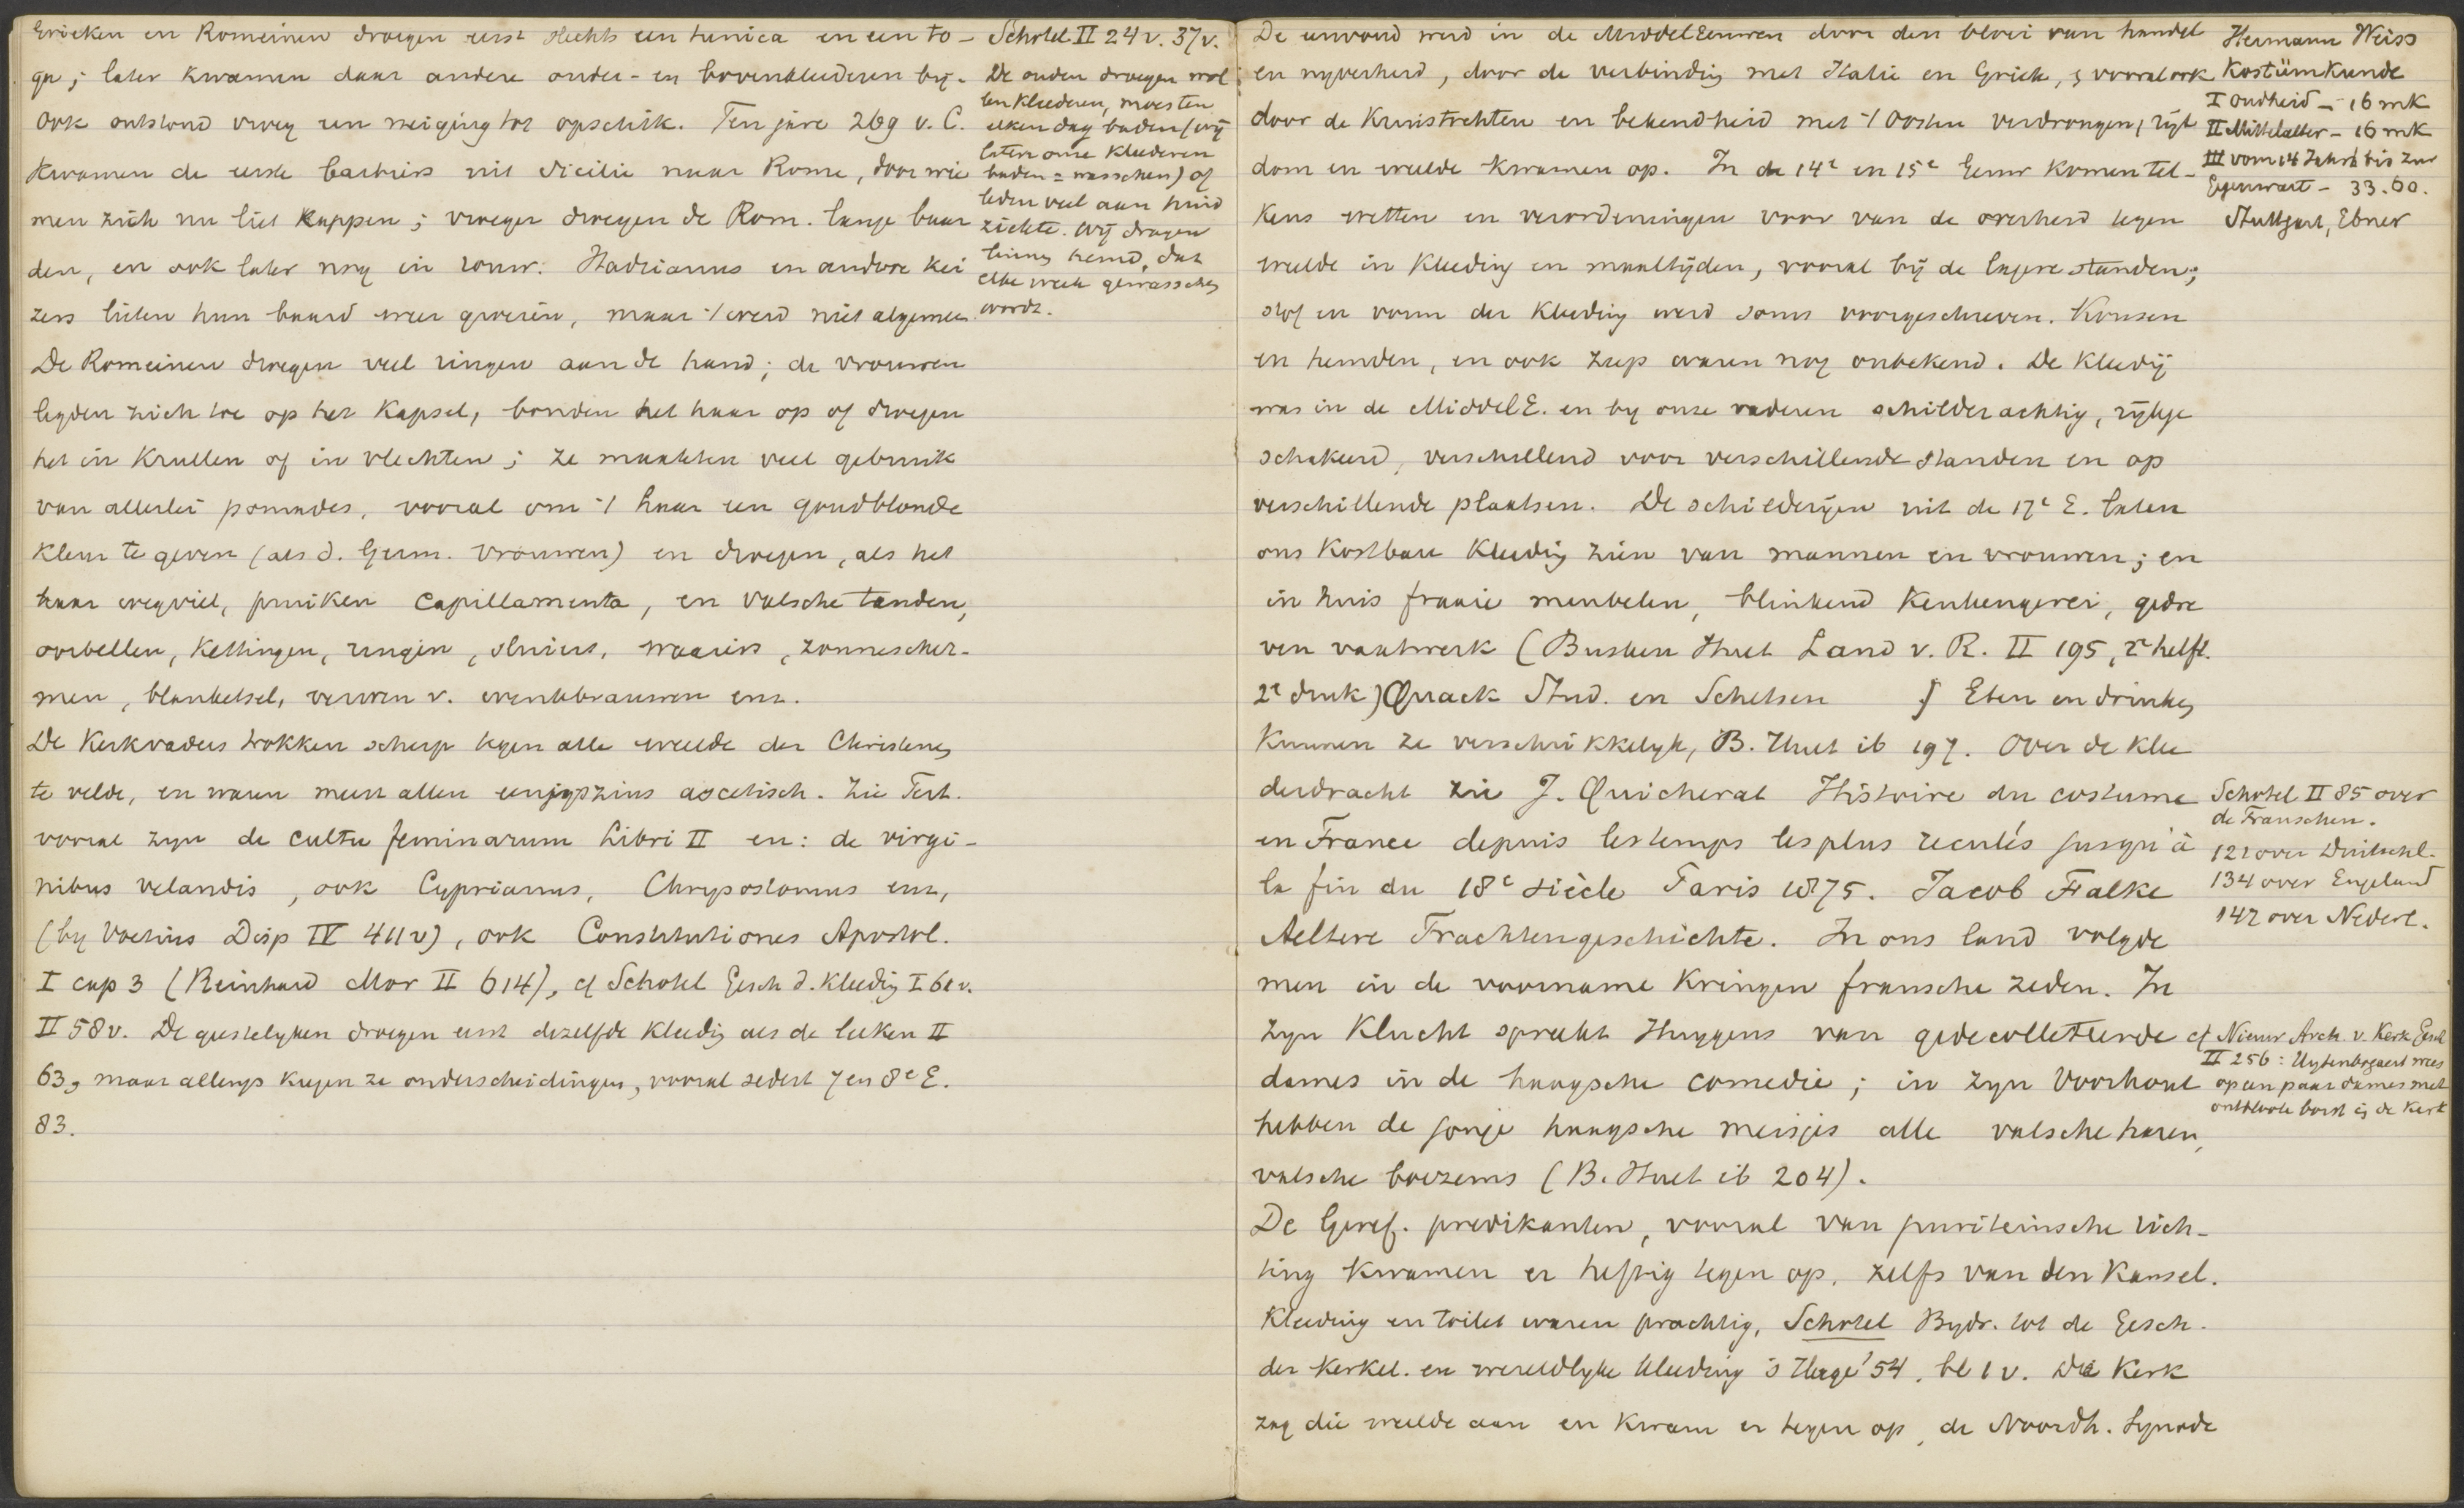 Grieken en Romeinen droegen eerst slechts een tunica en een to-
ga; later kwamen daar andere onder- en bovenkleederen bij.
Ook ontstond vroeg een neiging tot opschik. Ten jare 269 v. C.
kwamen de eerste barbiers uit Sicilie naar Rome, door wie
men zich nu liet kappen; vroeger droegen de Rom. lange baar
den, en ook later nog in rouw. Hadrianus en andere kei
zers lieten hun baard weer groeien, maar 't werd niet algemeen.
De Romeinen droegen veel ringen aan de hand; de vrouwen
legden zich toe op het kapsel, bonden het haar op of droegen
het in krullen of in vlechten; ze maakten veel gebruik
van allerlei pomades, vooral om 't haar een goudblonde
kleur te geven (als d. Germ. vrouwen) en droegen, als het
haar wegviel, pruiken capillamenta, en valsche tanden,
oorbellen, kettingen, ringen, sluiers, waaiers, zonnescher-
men, blanketsel, verwen v. wenkbrauwen enz.
De kerkvaders trokken scherp tegen alle weelde der Christenen
te velde, en waren meest allen eenigszins ascetisch. Zie Tert.
vooral zijn de cultu feminarum Libri II en: de virgi-
nibus velandis, ook Cyprianus, Chrysostomus enz,
(by Voetius Disp IV 411v), ook Constitutiones Apostol.
I cap 3 (Reinhard Mor II 614), cf Schotel Gesch d. kleeding I 61v.
II 58v. De geestelyken droegen eerst dezelfde kleeding als de leeken II
63, maar allengs kregen ze onderscheidingen, vooral sedert 7 en 8e E.
83.
Schotel II 24v. 37v.
De ouden droegen wol
len kleederen, moesten
elken dag baden (wij
laten onze kleederen
baden = wasschen) of
leden veel aan huid
ziekte. Wij dragen
linnen hemd, dat
elke week gewasschen
wordt.
De eenvoud werd in de MiddelEeuwen door den bloei van handel
en nyverheid, door de verbinding met Italie en Griek., vooral ook
door de Kruistochten en bekendheid met 't Oosten verdrongen, rijk
dom en weelde kwamen op. In de 14e en 15e Eeuw komen tel-
kens wetten en verordeningen voor van de overheid tegen
weelde in kleeding en maaltijden, vooral bij de lagere standen;
stof en vorm der kleeding werd soms voorgeschreven. Kousen
en hemden, en ook zeep waren nog onbekend. De kleedij
was in de MiddelE. en by onze vaderen schilderachtig, rijkge
schakeerd, verschillend voor verschillende standen en op
verschillende plaatsen. De schilderijen uit de 17e E. laten
ons kostbare kleeding zien van mannen en vrouwen; en
in huis fraaie meubelen, blinkend keukengerei, gedre
ven vaatwerk (Busken Huet Land v. R. II 195, 2e helft.
2e druk) Quack Stud. en Schetsen Eten en drinken
kunnen ze verschrikkelyk, B. Huet ib 197. Over de klee
derdracht zie J. Quicherat Histoire du costume
en France depuis les temps les plus reculés jusqu'à
la fin du 18e siècle Paris 1875. Jacob Falke
Aeltere Trachtengeschichte. In ons land volgde
men in de voorname kringen fransche zeden. In
zyn Klucht spreekt Huygens van gedecolleteerde
dames in de haagsche comedie; in zyn Voorhout
hebben de jonge haagsche meisjes alle valsche haren,
valsche boezems (B. Huet ib 204).
De Geref. predikanten, vooral van puriteinsche rich-
ting kwamen er heftig tegen op, zelfs van den kansel.
Kleeding en toilet waren prachtig, Schotel Bydr. tot de Gesch.
der kerkel. en wereldlyke kleeding 's Hage '54. bl 1 v. De Kerk
zag die weelde aan en kwam er tegen op, de Noordh. Synode
Hermann Weiss
Kostümkunde
I Oudheid - 16 mk
II Mittelalter - 16 mk
III vom 14 Jahrh bis zur
Gegenwart - 33.60.
Stuttgart, Ebner
Schotel II 85 over
de Franschen.
121 over Duitschl.
134 over Engeland
142 over Nederl.
cf Nieuw Arch. v. Kerk Gesch
II 256: Uytenbogaert wees
op een paar dames met
ontbloote borst in de kerk